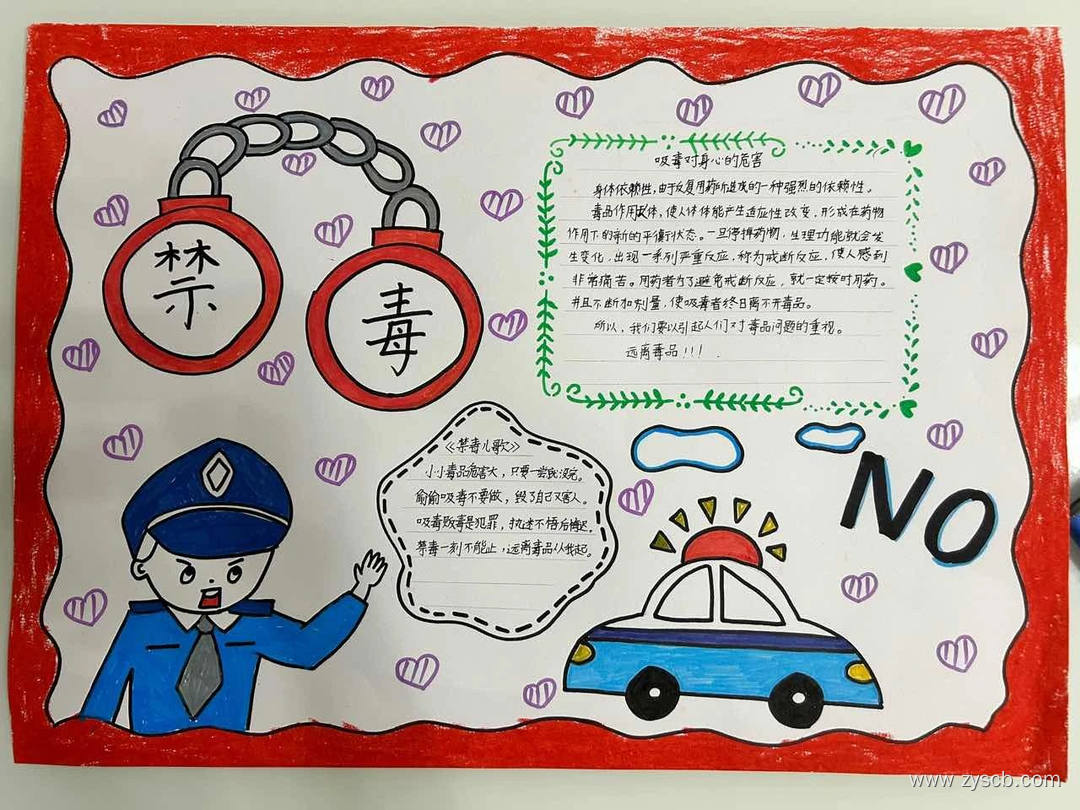 禁
毒
吸毒对身心的危害
身体依赖性,由于反复用药所造成的一种强烈的依赖性。
毒品作用于人体,使人体体能产生适应性改变,形成在药物
作用下的新的平衡状态。一旦停掉药物,生理功能就会发
生变化,出现一系列严重反应,称为戒断反应,使人感到
非常痛苦。用药者为了避免戒断反应,就一定按时用药。
并且不断加剂量,使吸毒者终日离不开毒品。
所以,我们要以引起人们对毒品问题的重视。
远离毒品!!!.
《禁毒儿歌》
小小毒品危害大,只要一尝就没完。
偷偷吸毒不要做,毁了自己又害人。
吸毒贩毒是犯罪,执迷不悟后悔迟。
禁毒一刻不能止,远离毒品从我起。
NO
www.zyscb.com